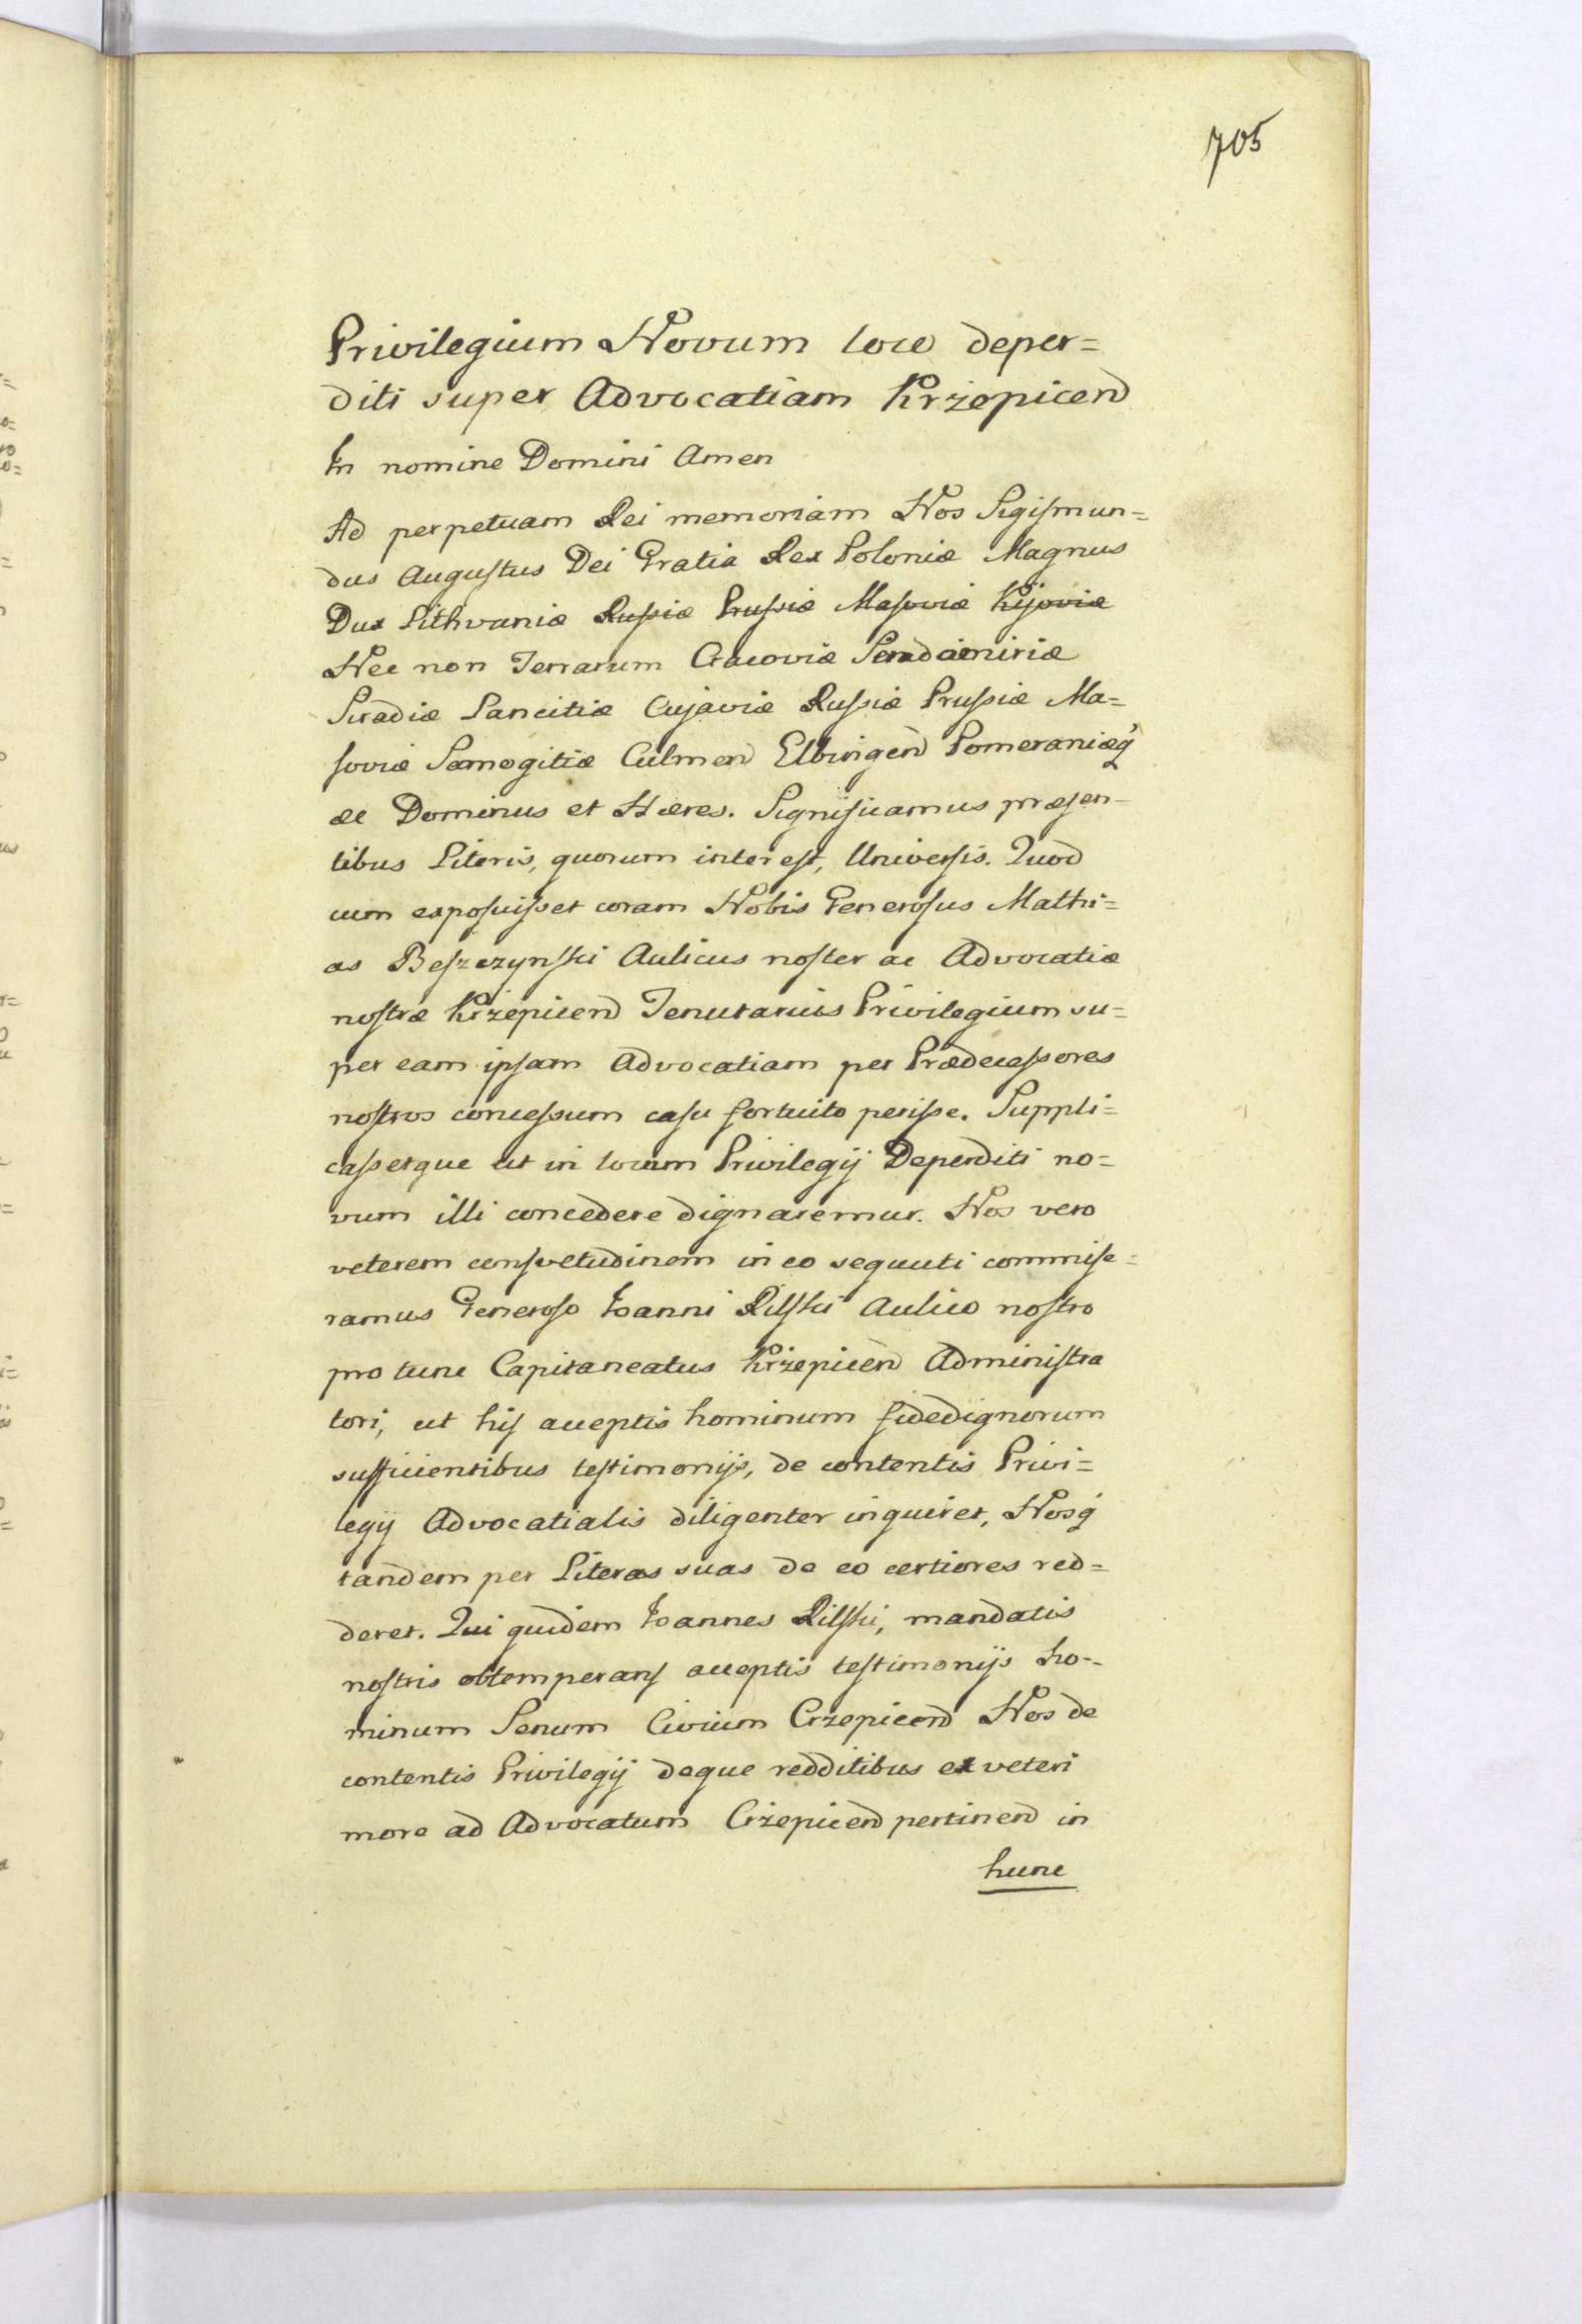 705
Privilegium Novum loco deper=
diti super Advocatiam Krzepicen
In nomine Domini Amen
Ad perpetuam Rei memoriam Nos Sigismun=
dus Augustus Dei Gratia Rex Poloniæ Magnus
Dux Lithvaniæ Russiæ Prussiæ Masoviæ Kijoviæ
Nec non Terrarum Cracoviæ Sendomiriæ
Siradiæ Lancitiæ Cujaviæ Russiæ Prussiæ Ma=
soviæ Samogitiæ Culmen Elbingen Pomeraniæq́
ac Dominus et Hæres. Significamus præsen=
tibus Literis, quorum interest, Universis. Quod
cum exposuisset coram Nobis Generosus Mathi=
as Beszczynski Aulicus noster ac Advocatiæ
nostræ Krzepicen Tenutarius Privilegium su=
per eam ipsam Advocatiam per Prædecessores
nostros concessum casu fortuito periisse. Suppli=
cassetque ut in locum Privilegij Deperditi no=
vum illi concedere dignaremur. Nos vero
veterem consvetudinem in eo sequuti commise=
ramus Generoso Joanni Rilski Aulico nostro
pro tunc Capitaneatus Krzepicen Administra
tori, ut his acceptis hominum fidedignorum
sufficientibus testimonijs, de contentis Privi=
legij Advocatialis diligenter inquiret, Nosq́
tandem per Literas suas de eo certiores red=
deret. Qui quidem Joannes Rilski, mandatis
nostris obtemperans acceptis testimonijs ho=
minum Senum Civium Crzepicen Nos de
contentis Privilegij deque redditibus ex veteri
more ad Advocatum Crzepicen pertinen in
hunc